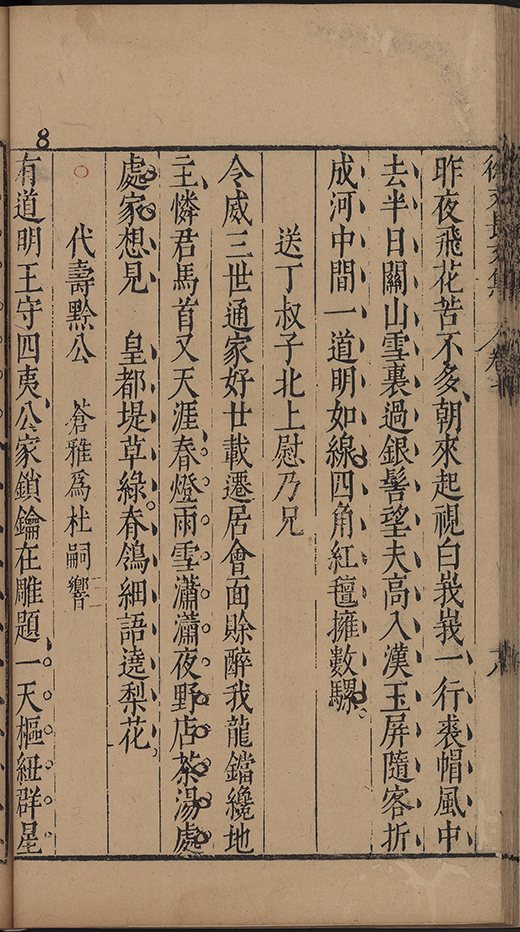 徐文長文集 卷七
昨夜飛花苦不多朝來起視白峩峩一行裘帽風中
去半日關山雪裏過銀髻望夫高入漢玉屏隨客折
成河中間一道明如線四角紅氊擁數騾
送丁叔子北上慰乃兄
令威三世通家好廿載遷居會面賒醉我龍鐺纔地
主憐君馬首又天涯春燈雨雪瀟瀟夜野店茶湯處
處家想見 皇都堤草綠春鴒細語遶梨花
代壽黔公 蒼雅爲杜嗣響
有道明王守四夷公家鎖鑰在雕題一天樞紐群星
8